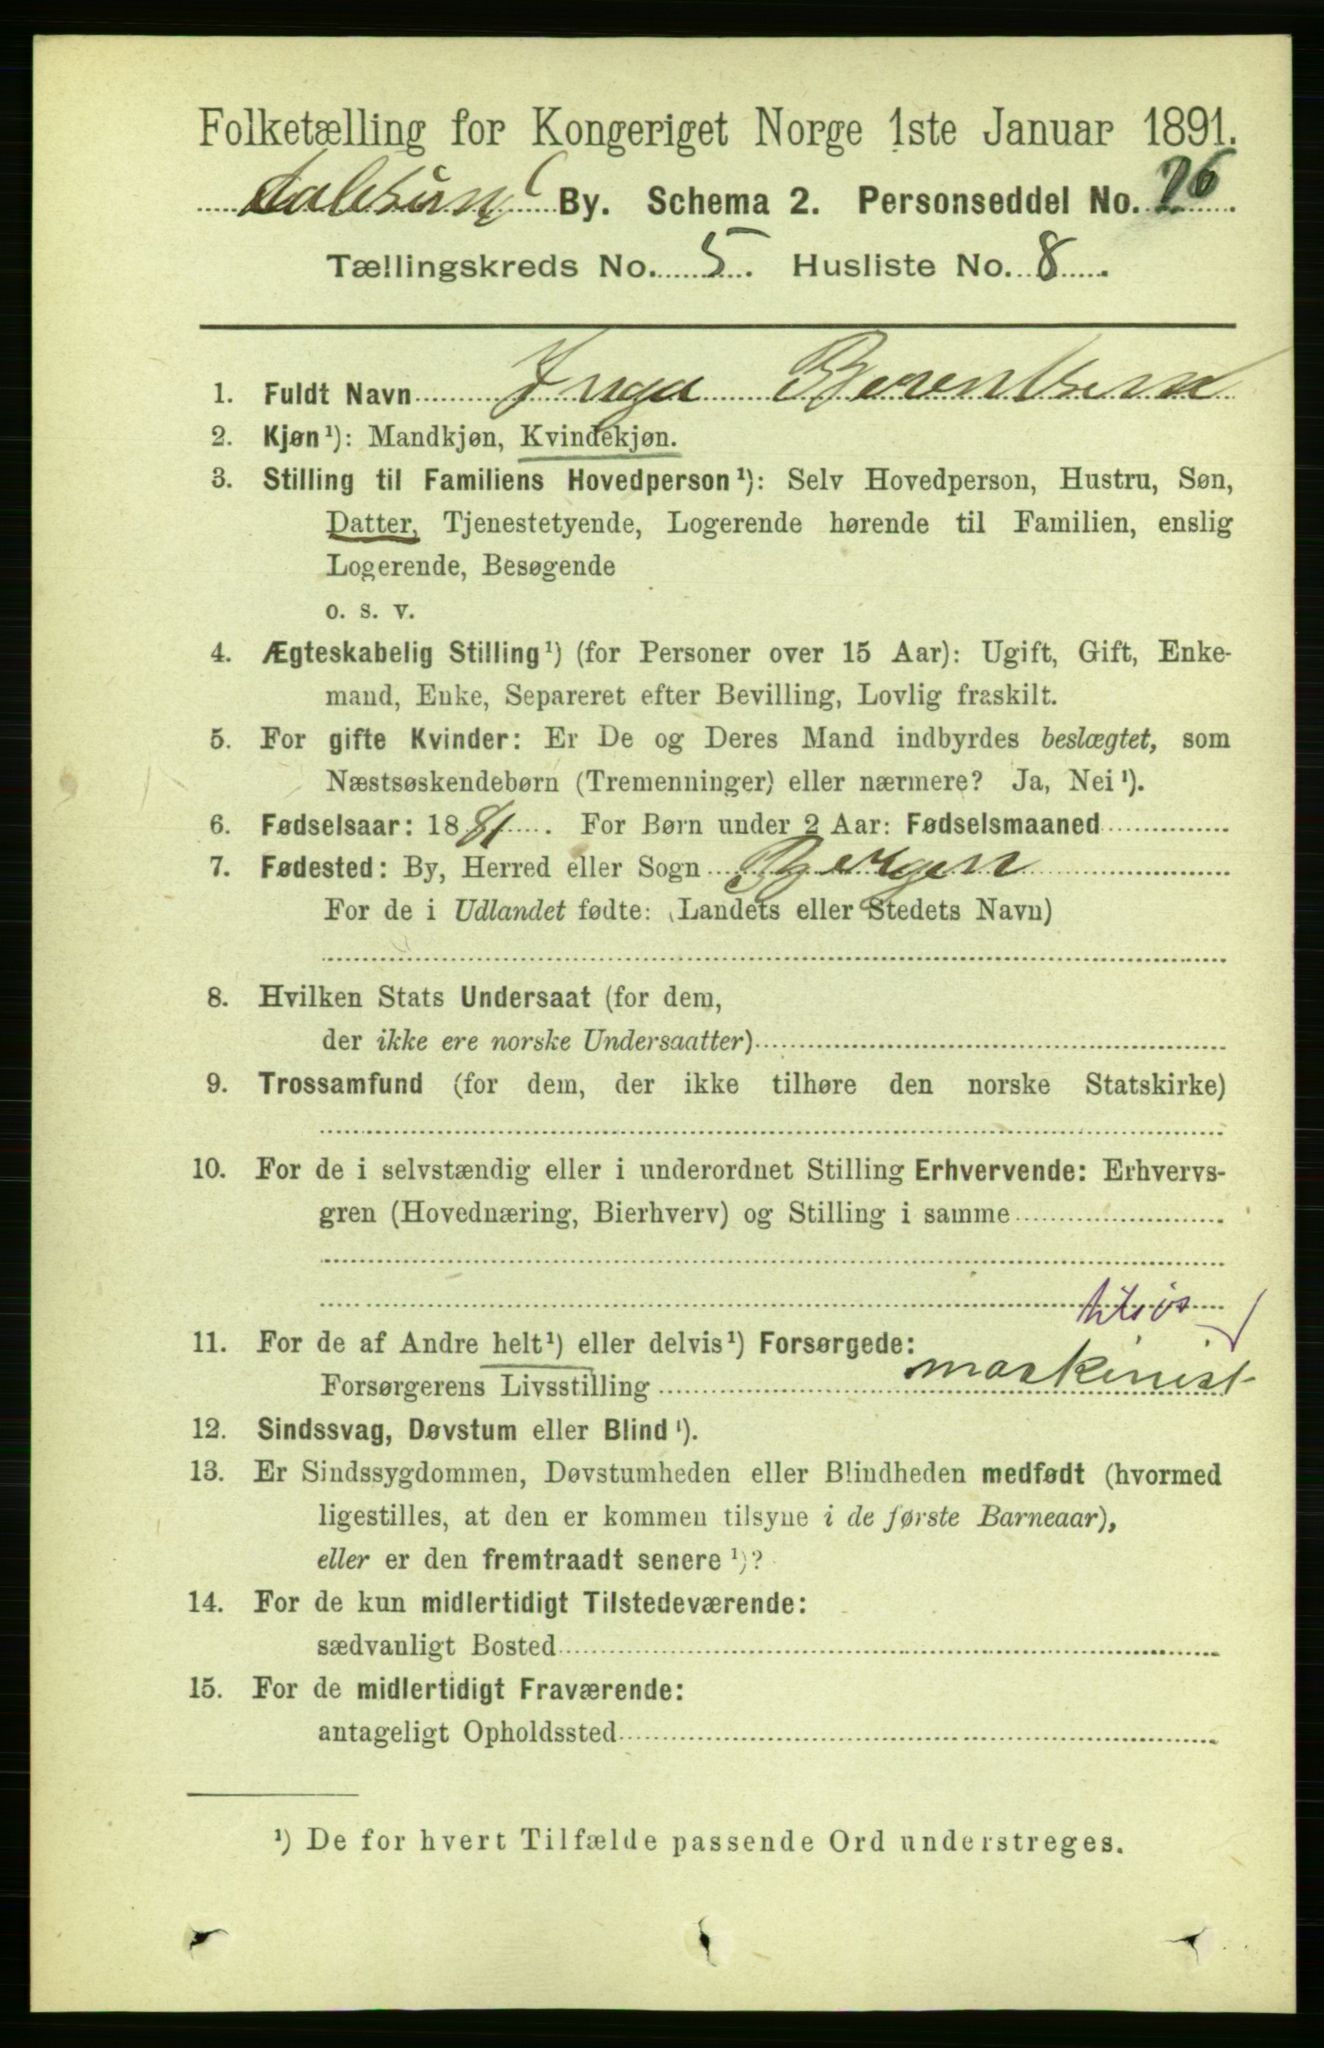 Folketælling for Kongeriget Norge 1ste Januar 1891.
Aalesund By. Schema 2. Personseddel No. 26
Tællingskreds No. 5. Husliste No. 8.
1. Fuldt Navn Inga Berentsen
2. Kjøn¹): Mandkjøn, Kvindekjøn.
3. Stilling til Familiens Hovedperson¹): Selv Hovedperson, Hustru, Søn,
Datter, Tjenestetyende, Logerende hørende til Familien, enslig
Logerende, Besøgende
o. s. v.
4. Ægteskabelig Stilling¹) (for Personer over 15 Aar): Ugift, Gift, Enke-
mand, Enke, Separeret efter Bevilling, Lovlig fraskilt.
5. For gifte Kvinder: Er De og Deres Mand indbyrdes beslægtet, som
Næstsøskendebørn (Tremenninger) eller nærmere? Ja, Nei¹).
6. Fødselsaar: 1881. For Børn under 2 Aar: Fødselsmaaned
7. Fødested: By, Herred eller Sogn Bergen
For de i Udlandet fødte: (Landets eller Stedets Navn)
8. Hvilken Stats Undersaat (for dem,
der ikke ere norske Undersaatter)
9. Trossamfund (for dem, der ikke tilhøre den norske Statskirke)
10. For de i selvstændig eller i underordnet Stilling Erhvervende: Erhvervs-
gren (Hovednæring, Bierhverv) og Stilling i samme
11. For de af Andre helt¹) eller delvis¹) Forsørgede:
Forsørgerens Livsstilling maskinist
12. Sindssvag, Døvstum eller Blind¹).
13. Er Sindssygdommen, Døvstumheden eller Blindheden medfødt (hvormed
ligestilles, at den er kommen tilsyne i de første Barneaar),
eller er den fremtraadt senere¹)?
14. For de kun midlertidigt Tilstedeværende:
sædvanligt Bosted
15. For de midlertidigt Fraværende:
antageligt Opholdssted
¹) De for hvert Tilfælde passende Ord understreges.